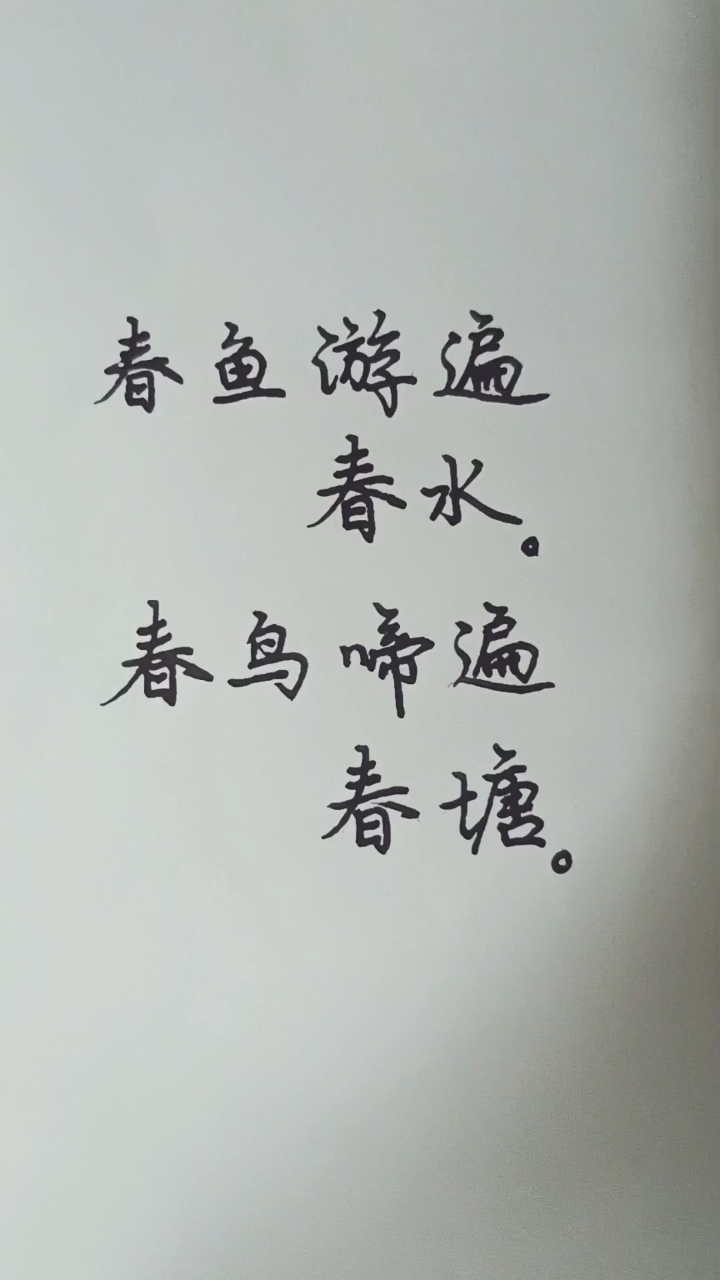 春鱼游遍
春水。
春鸟啼遍
春塘。